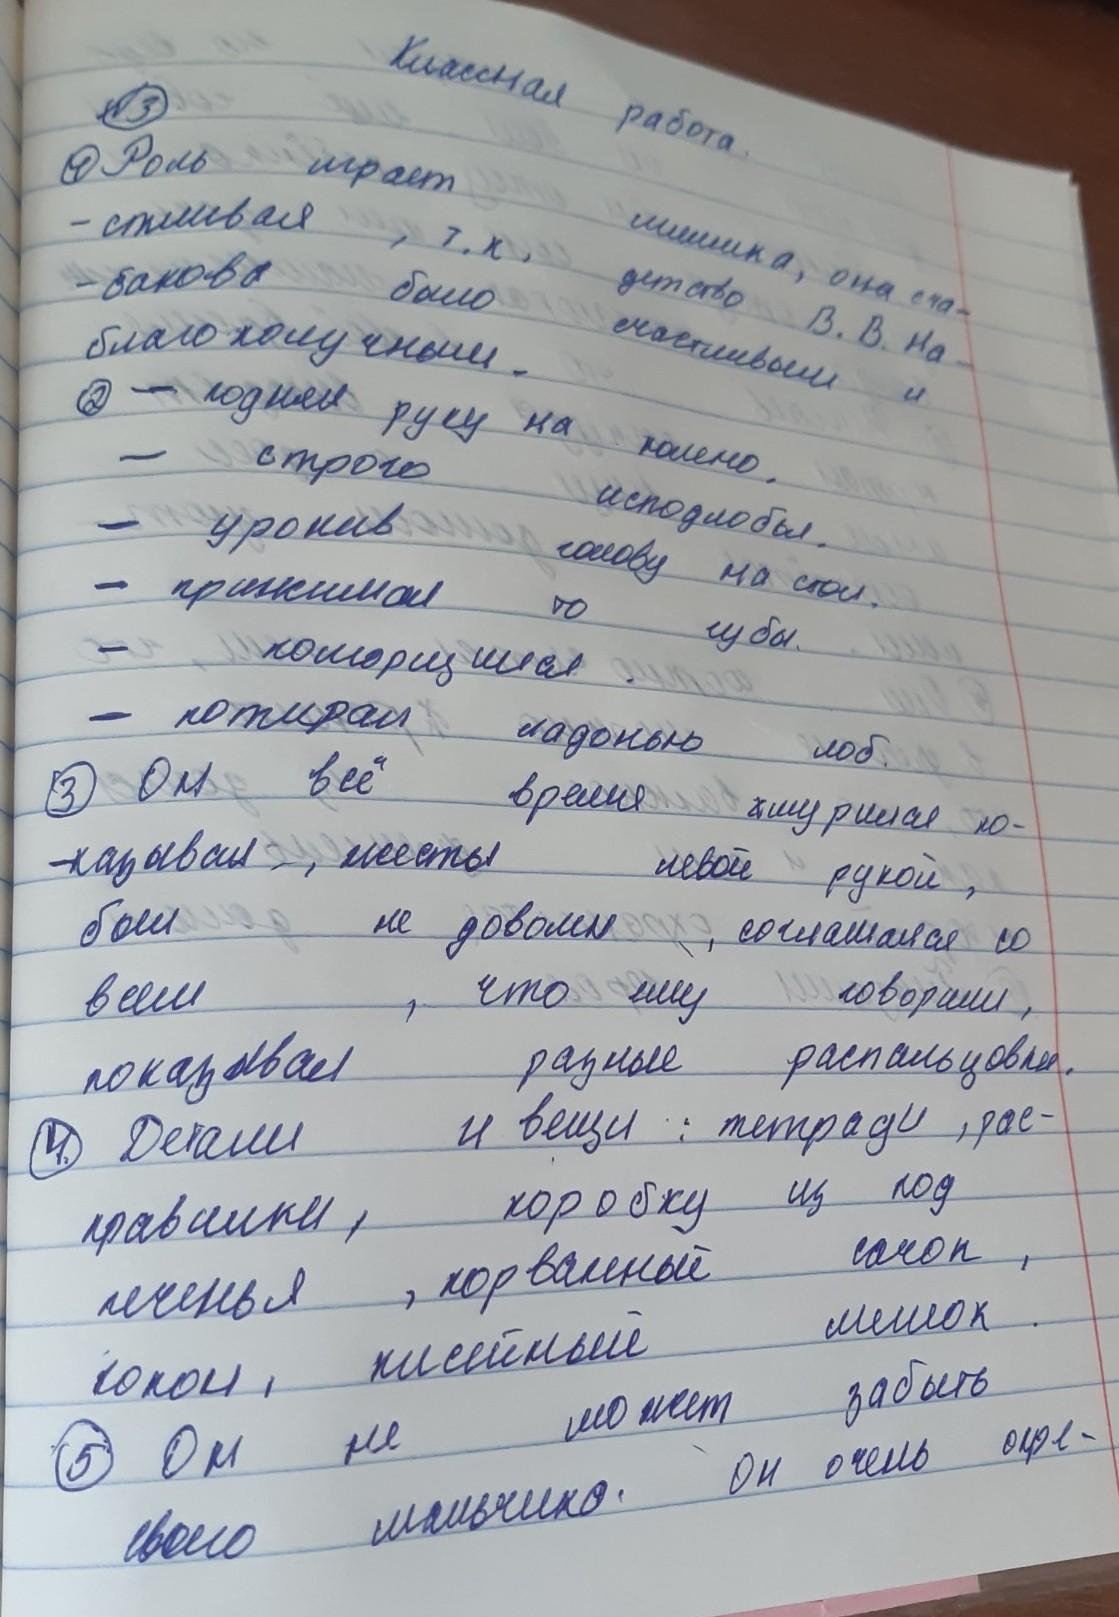 Классная работа.
№3
① Роль играет шишка, она сча-
-стливая, т.к, детство В. В. На-
-бакова было счастливым и
благополучным.
② – поднял руку на колено.
– строго исподлобья.
– уронив голову на стол.
– прижимая то губы.
– поморщился.
– потирал ладонью лоб.
③ Он всё время хмурился по-
-казывал, жесты левой рукой,
был не доволен, соглашался со
всем, что ему говорили,
показывал разные распальцовки.
④. Детали и вещи: тетради, рас-
правилки, коробку из под
печенья, порванный сачок,
кокон, кисейный мешок.
⑤ Он не может забыть
своего мальчика. Он очень опре-